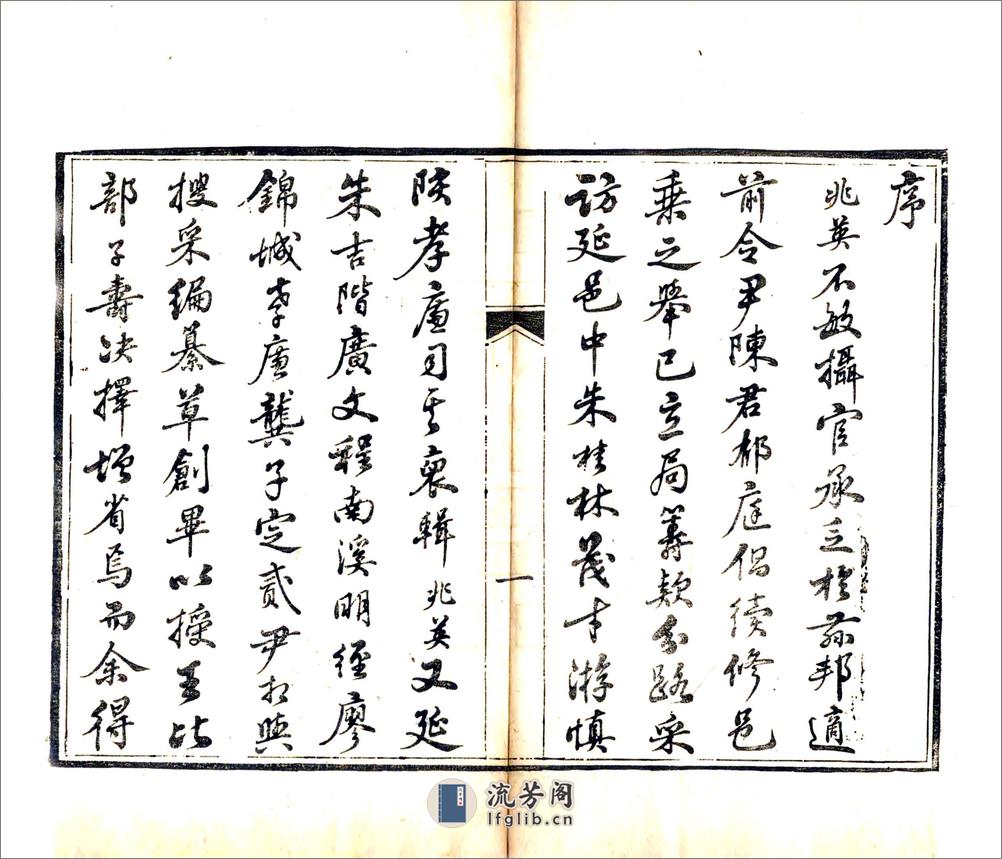 序
兆英不敏攝官承乏於茲邦適
前令尹陳君都庭倡續修邑
乘之舉已立局籌款分路采
訪延邑中朱桂林茂才游慎
陔孝廉司其裒輯兆英又延
朱吉階廣文程南溪明經廖
錦城孝廉龔子定貳尹相與
搜采編纂草創畢以授王比
部子壽决擇增省焉而余得
一
流芳阁
lfglib.cn